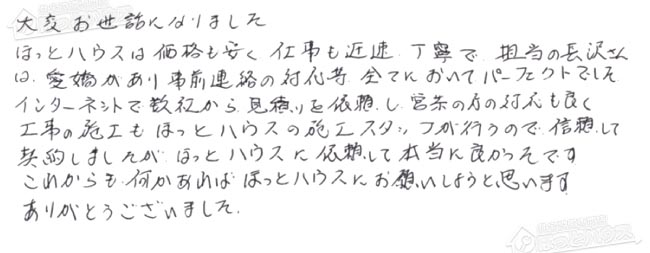 大変お世話になりました
ほっとハウスは価格も安く仕事も迅速、丁寧で、担当の長沢さん
は、愛嬌があり事前連絡の対応等全てにおいてパーフェクトでした
インターネットで数社から見積りを依頼し営業の方の対応も良く
工事の施工もほっとハウスの施工スタッフが行うので信頼して
契約しましたがほっとハウスに依頼して本当に良かったです
これからも何かあればほっとハウスにお願いしようと思います
ありがとうございました。
ほっとハウス